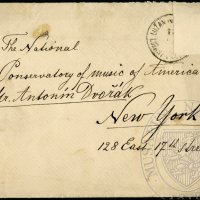 The National
Conservatory of music of America
Mr. Antonín Dvořák
New York
128 East 17th Stre